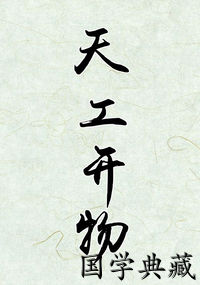 天工开物
国学典藏